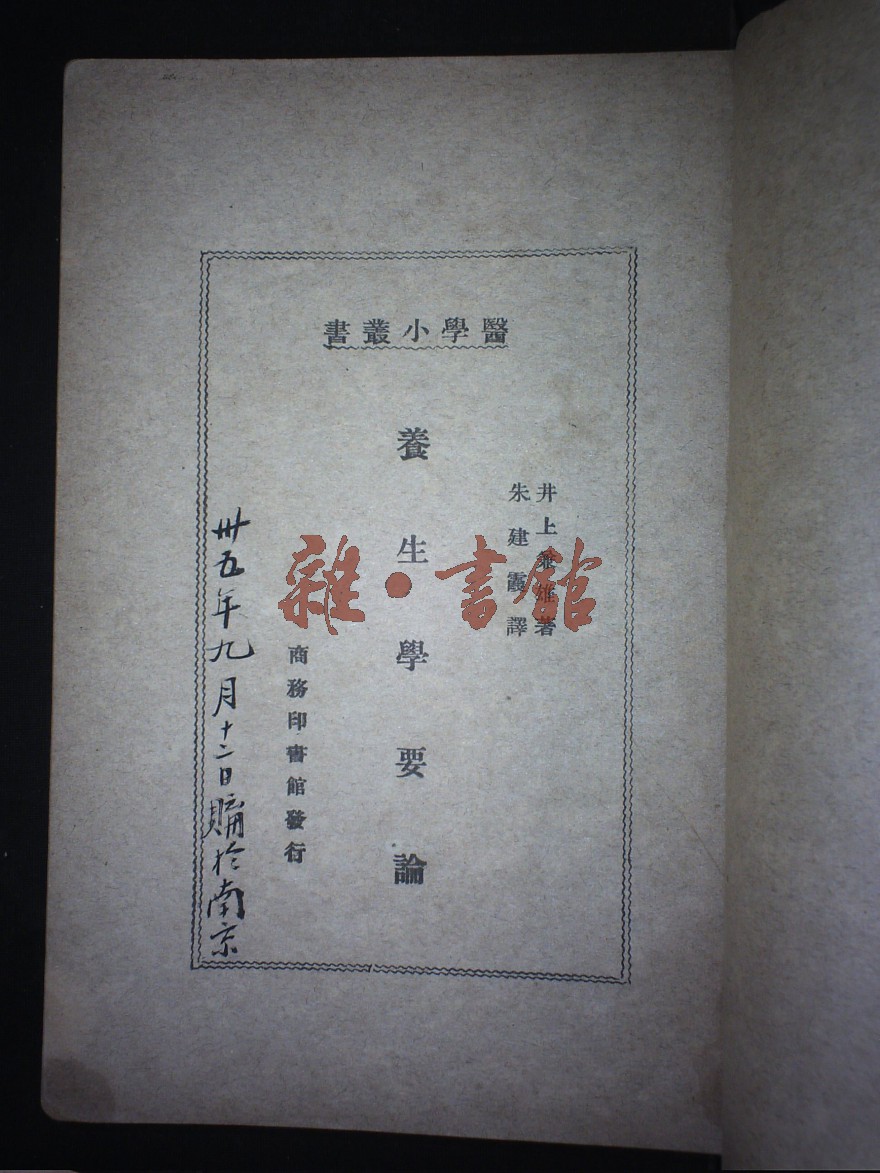 醫學小叢書
井上兼雄著
朱建霞譯
養生學要論
商務印書館發行
卅五年九月十二日購於南京
雜·書館